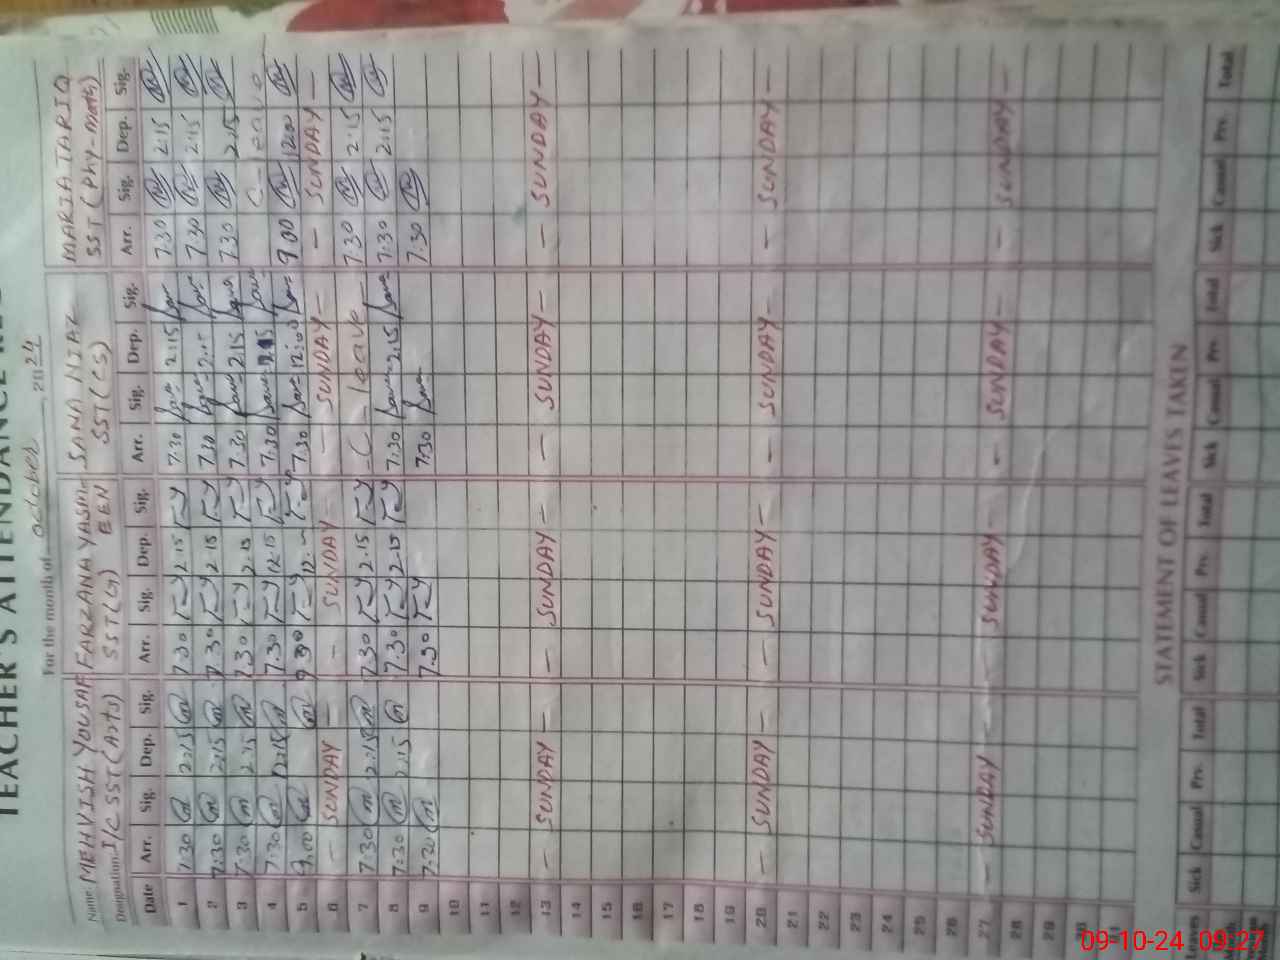 TEACHER'S ATTENDANCE RE
For the month of October, 2024
Name: MEHVISH YOUSAF FARZANA YASMEEN SANA NIAZ MARIA TARIQ
Designation: I/C SST (Arts) SST (G) SST (CS) SST (Phy-Math)
Date Arr. Sig. Dep. Sig. Arr. Sig. Dep. Sig. Arr. Sig. Dep. Sig. Arr. Sig. Dep. Sig.
1 7:30 2:15 7:30 2:15 7:30 2:15 7:30 2:15
2 7:30 2:15 7:30 2:15 7:30 2:15 7:30 2:15
3 7:30 2:15 7:30 2:15 7:30 2:15 7:30 2:15
4 7:30 12:15 7:30 12:15 7:30 12:15 C-leave
5 9:00 7:30 12:00 9:00 12:00
6 - SUNDAY - - SUNDAY - - SUNDAY - - SUNDAY -
7 7:30 2:15 7:30 2:15 -C- leave - 7:30 2:15
8 7:30 2:15 7:30 2:15 7:30 2:15 7:30 2:15
9 7:30 7:30 7:30 7:30
10
11
12
13 - SUNDAY - - SUNDAY - - SUNDAY - - SUNDAY -
14
15
16
17
18
19
20 - SUNDAY - - SUNDAY - - SUNDAY - - SUNDAY -
21
22
23
24
25
26
27 - SUNDAY - - SUNDAY - - SUNDAY - - SUNDAY -
28
29
30
31
STATEMENT OF LEAVES TAKEN
Leaves Sick Casual Prv. Total Sick Casual Prv. Total Sick Casual Prv. Total Sick Casual Prv. Total
09-10-24 09:27